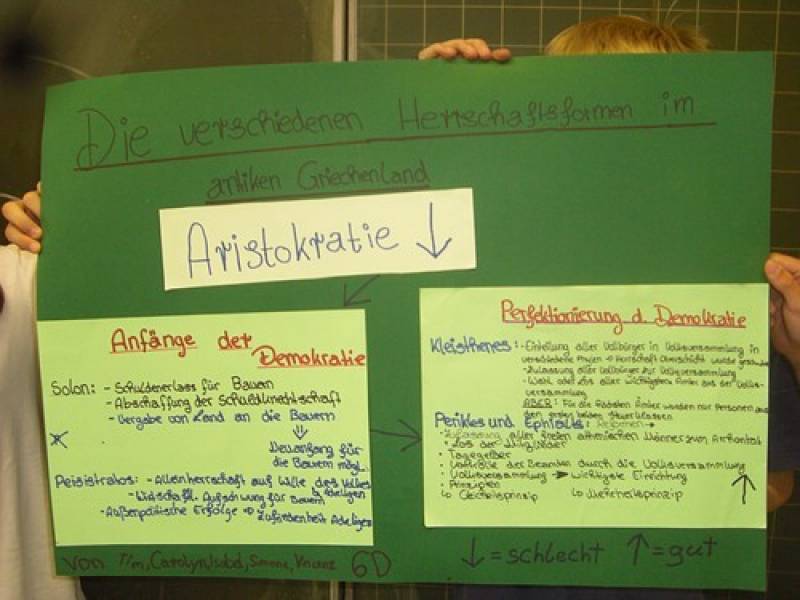 Die verschiedenen Herrschaftsformen im
antiken Griechenland
Aristokratie ↓
Anfänge der
Demokratie
Solon: - Schuldenerlass für Bauern
- Abschaffung der Schuldknechtschaft
- Vergabe von Land an die Bauern
Neuanfang für
die Bauern mögl.
Peisistratos: - Alleinherrschaft auf Wille des Volkes
- Wirtschaftl. Aufschwung für Bauern & Adeligen
- Außenpolitische Erfolge ⇒ Zufriedenheit Adeliger
Perfektionierung d. Demokratie
Kleisthenes: - Einteilung aller Vollbürger in Volksversammlung in
verschiedene Phylen → Herrschaft Oberschicht wurde
- Zulassung aller Vollbürger zur Volksversammlung
- Wahl oder Los aller wichtigsten Ämter aus der Volks-
versammlung
ABER: Für die höchsten Ämter wurden nur Personen aus
den ersten beiden Steuerklassen
Perikles und Ephialtes: Reformen →
- Zulassung aller freien athenischen Männer zum Archontat
- Los der Mitglieder
- Tagegelder
- Kontrolle der Beamten durch die Volksversammlung
- Volksversammlung → wichtigste Einrichtung
- Prinzipien
↳ Gleichheitsprinzip ↳ Mehrheitsprinzip ↑
Von Tim, Carolyn, Isabel, Simone, Vincent 6D
↓ = schlecht ↑ = gut